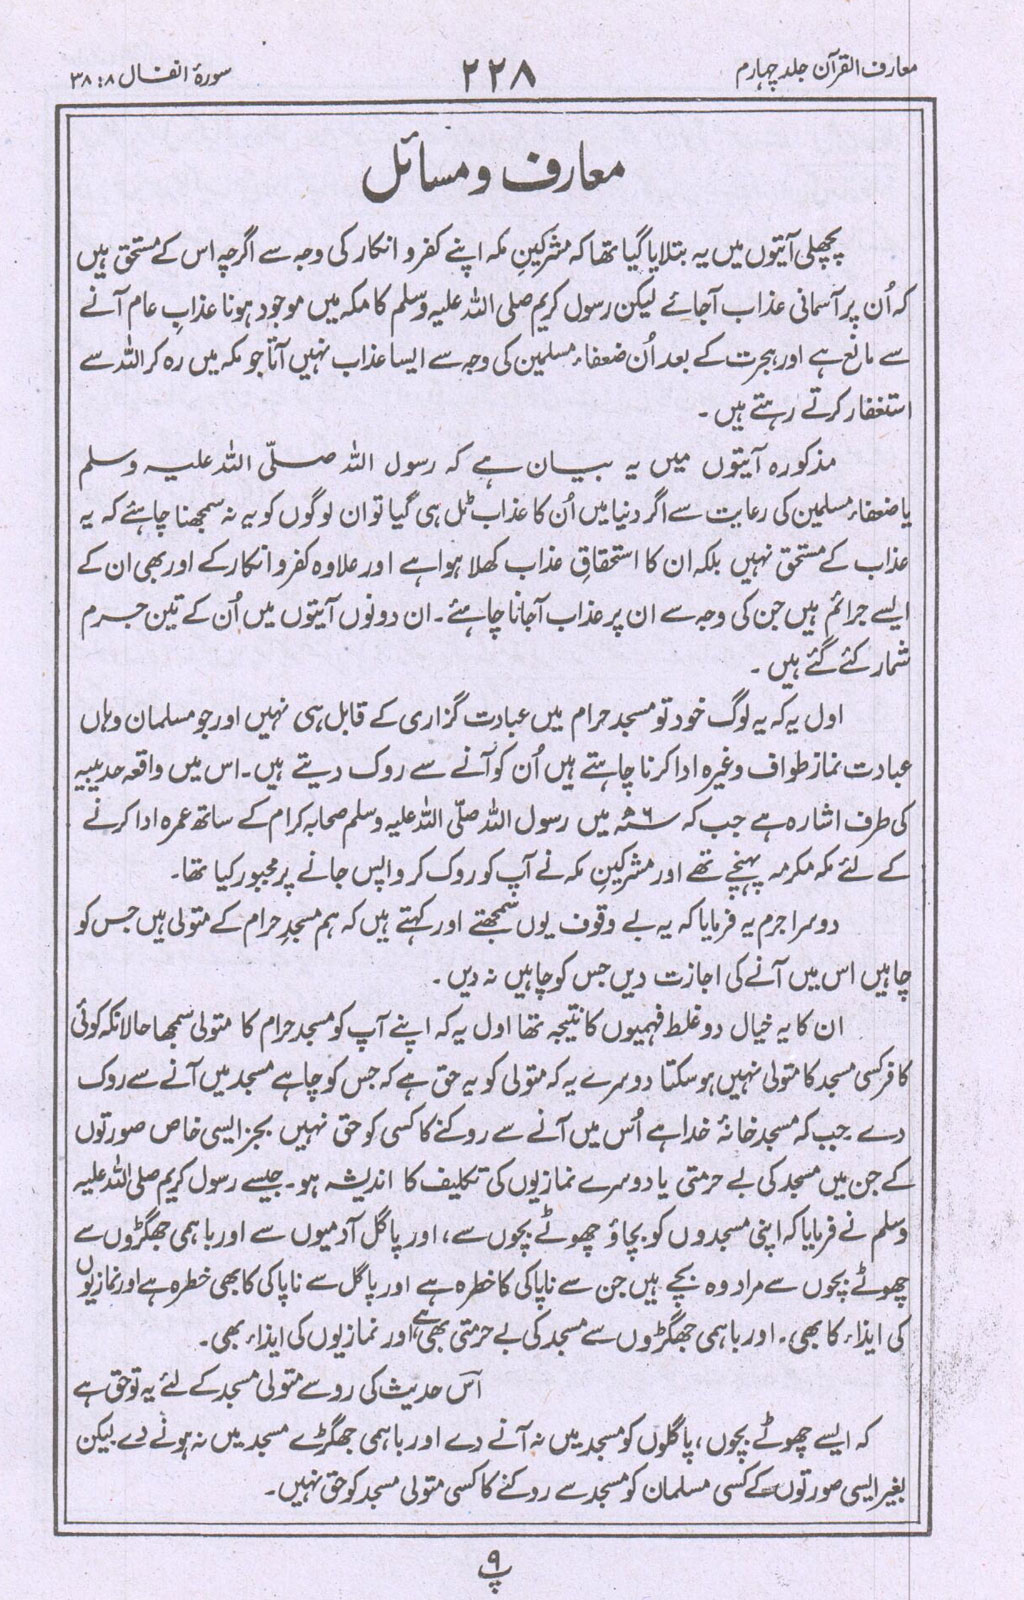 معارف القرآن جلد چہارم
۲۲۸
سورۂ انفال ۸ : ۳۸
معارف و مسائل
پچھلی آیتوں میں یہ بتلایا گیا تھا کہ مشرکینِ مکہ اپنے کفر و انکار کی وجہ سے اگرچہ اس کے مستحق ہیں
کہ اُن پر آسمانی عذاب آجائے لیکن رسول کریم صلی اللہ علیہ وسلم کا مکہ میں موجود ہونا عذابِ عام آنے
سے مانع ہے اور ہجرت کے بعد اُن ضعفاء مسلمین کی وجہ سے ایسا عذاب نہیں آتا جو مکہ میں رہ کر اللہ سے
استغفار کرتے رہتے ہیں ۔
مذکورہ آیتوں میں یہ بیان ہے کہ رسول اللہ صلّی اللہ علیہ وسلم
یا ضعفاء مسلمین کی رعایت سے اگر دنیا میں اُن کا عذاب ٹل ہی گیا تو ان لوگوں کو یہ نہ سمجھنا چاہئے کہ یہ
عذاب کے مستحق نہیں بلکہ ان کا استحقاقِ عذاب کھلا ہوا ہے اور علاوہ کفر و انکار کے اور بھی ان کے
ایسے جرائم ہیں جن کی وجہ سے ان پر عذاب آجانا چاہئے ۔ ان دونوں آیتوں میں اُن کے تین جرم
شمار کئے گئے ہیں ۔
اول یہ کہ یہ لوگ خود تو مسجد حرام میں عبادت گزاری کے قابل ہی نہیں اور جو مسلمان وہاں
عبادت نماز طواف وغیرہ ادا کرنا چاہتے ہیں اُن کو آنے سے روک دیتے ہیں ۔ اس میں واقعہ حدیبیہ
کی طرف اشارہ ہے جب کہ سنہ ۶ھ میں رسول اللہ صلّی اللہ علیہ وسلم صحابہ کرام کے ساتھ عمرہ ادا کرنے
کے لئے مکہ مکرمہ پہنچے تھے اور مشرکینِ مکہ نے آپ کو روک کر واپس جانے پر مجبور کیا تھا ۔
دوسرا جرم یہ فرمایا کہ یہ بے وقوف یوں سمجھتے اور کہتے ہیں کہ ہم مسجدِ حرام کے متولی ہیں جس کو
چاہیں اس میں آنے کی اجازت دیں جس کو چاہیں نہ دیں ۔
ان کا یہ خیال دو غلط فہمیوں کا نتیجہ تھا اول یہ کہ اپنے آپ کو مسجد حرام کا متولی سمجھا حالانکہ کوئی
کافر کسی مسجد کا متولی نہیں ہوسکتا دوسرے یہ کہ متولی کو یہ حق ہے کہ جس کو چاہے مسجد میں آنے سے روک
دے جب کہ مسجد خانۂ خدا ہے اُس میں آنے سے روکنے کا کسی کو حق نہیں بجز ایسی خاص صورتوں
کے جن میں مسجد کی بے حرمتی یا دوسرے نمازیوں کی تکلیف کا اندیشہ ہو ۔ جیسے رسول کریم صلی اللہ علیہ
وسلم نے فرمایا کہ اپنی مسجدوں کو بچاؤ چھوٹے بچوں سے ، اور پاگل آدمیوں سے اور باہمی جھگڑوں سے
چھوٹے بچوں سے مراد وہ بچے ہیں جن سے ناپاکی کا خطرہ ہے اور پاگل سے ناپاکی کا بھی خطرہ ہے اور نمازیوں
کی ایذاء کا بھی ۔ اور باہمی جھگڑوں سے مسجد کی بے حرمتی بھی ہے اور نمازیوں کی ایذاء بھی ۔
اس حدیث کی رو سے متولی مسجد کے لئے یہ تو حق ہے
کہ ایسے چھوٹے بچوں ، پاگلوں کو مسجد میں نہ آنے دے اور باہمی جھگڑے مسجد میں نہ ہونے دے لیکن
بغیر ایسی صورتوں کے کسی مسلمان کو مسجد سے روکنے کا کسی متولی مسجد کو حق نہیں ۔
۹
پ